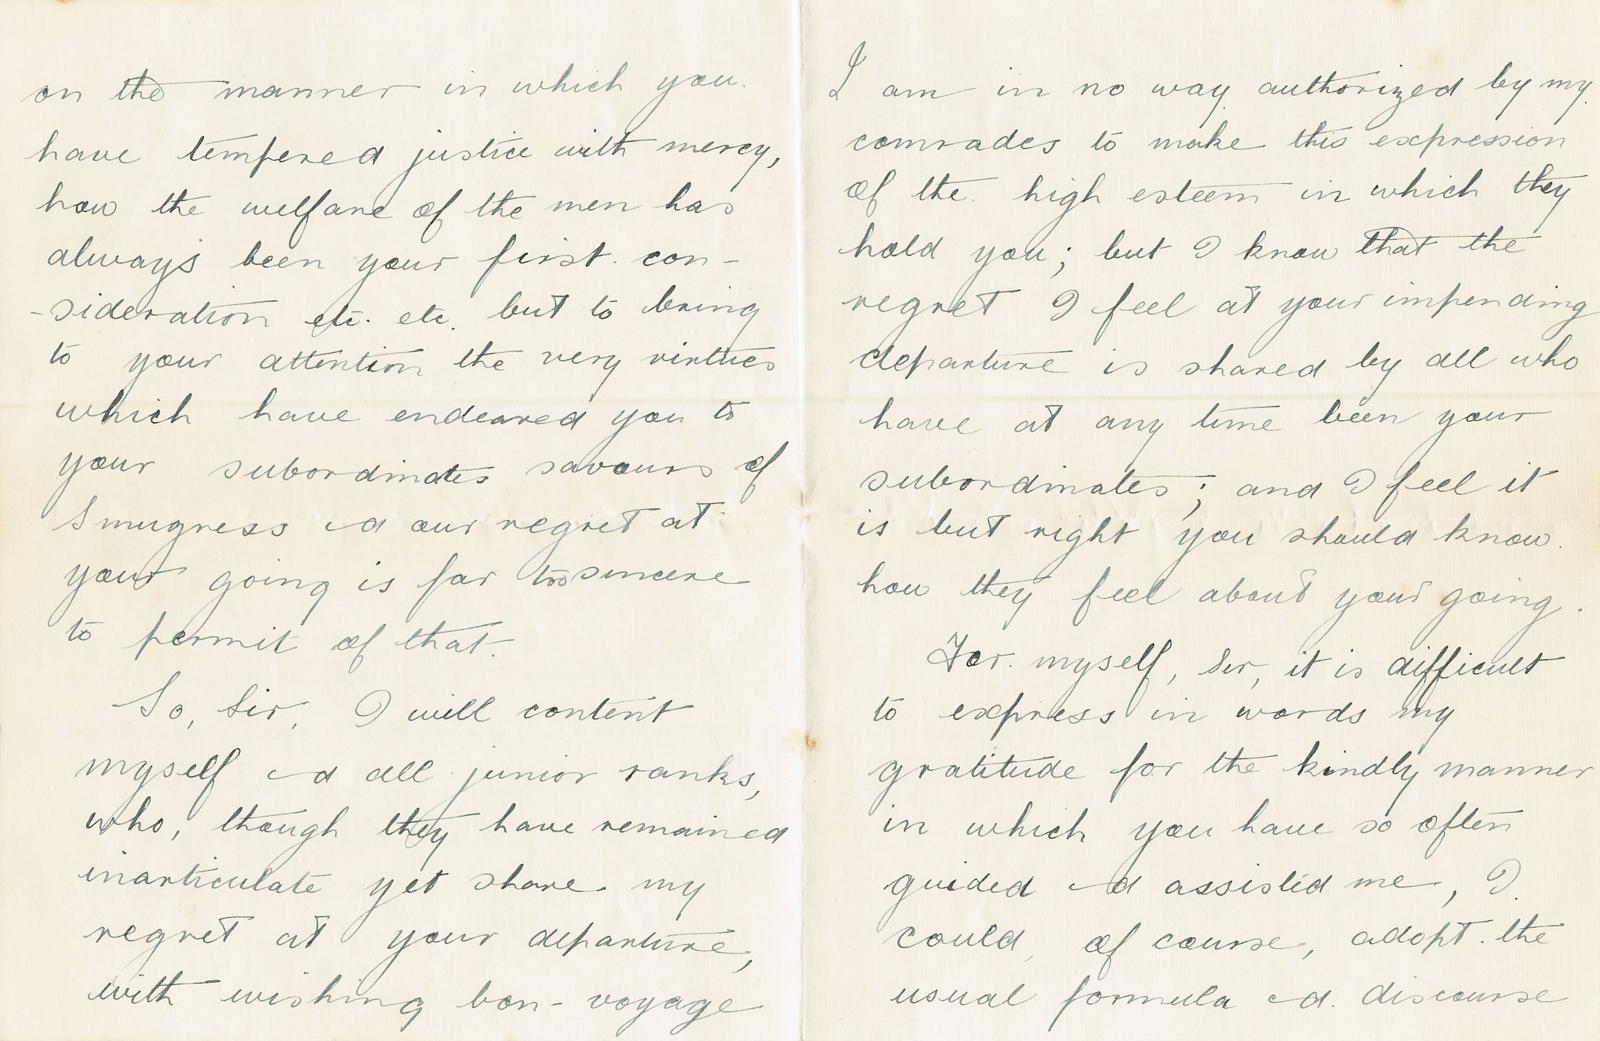 on the manner in which you
have tempered justice with mercy,
how the welfare of the men has
always been your first con-
-sideration etc. etc. but to bring
to your attention the very virtues
which have endeared you to
your subordinates savours of
smugness & our regret at
your going is far too sincere
to permit of that.
So, Sir, I will content
myself & all junior ranks,
who, though they have remained
inarticulate yet share my
regret at your departure,
with wishing bon-voyage
I am in no way authorized by my
comrades to make this expression
of the high esteem in which they
hold you; but I know that the
regret I feel at your impending
departure is shared by all who
have at any time been your
subordinates; and I feel it
is but right you should know
how they feel about your going.
For myself, Sir, it is difficult
to express in words my
gratitude for the kindly manner
in which you have so often
guided & assisted me, I
could, of course, adopt the
usual formula & discourse